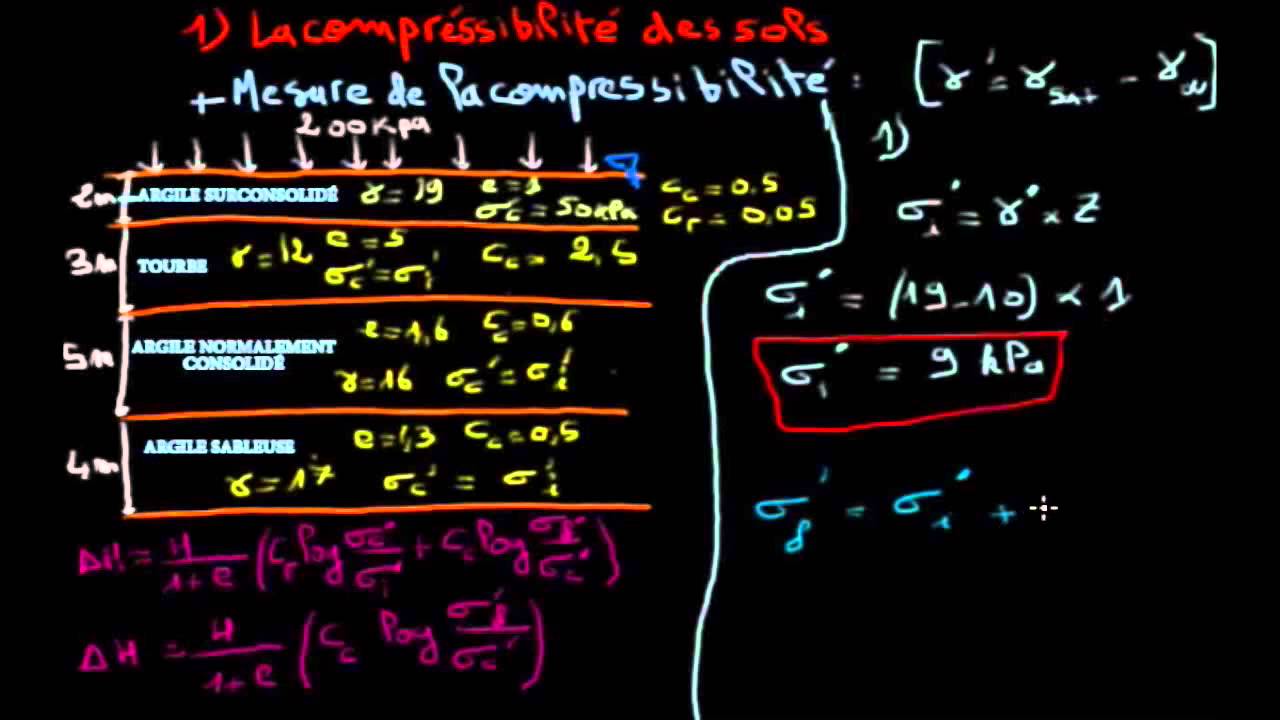 1) La compréssibilité des sols
+ Mesure de la compressibilité :
[γ' = γsat - γw]
200 kpa
q
2m
ARGILE SURCONSOLIDÉ
γ = 19
e = 1
σc' = 50 kPa
Cc = 0.5
Cr = 0,05
3m
TOURBE
γ = 12
e = 5
σc' = σi'
Cc = 2,5
5m
ARGILE NORMALEMENT
CONSOLIDÉ
e = 1,6
Cc = 0,6
γ = 16
σc' = σi'
4m
ARGILE SABLEUSE
e = 1,3
Cc = 0,5
γ = 17
σc' = σi'
ΔH = H/(1+e) (Cr log σc'/σi + Cc log σf'/σc')
ΔH = H/(1+e) (Cc log σf'/σc')
1)
σi' = γ' × z
σi' = (19-10) × 1
σi' = 9 kPa
σf' = σi' +